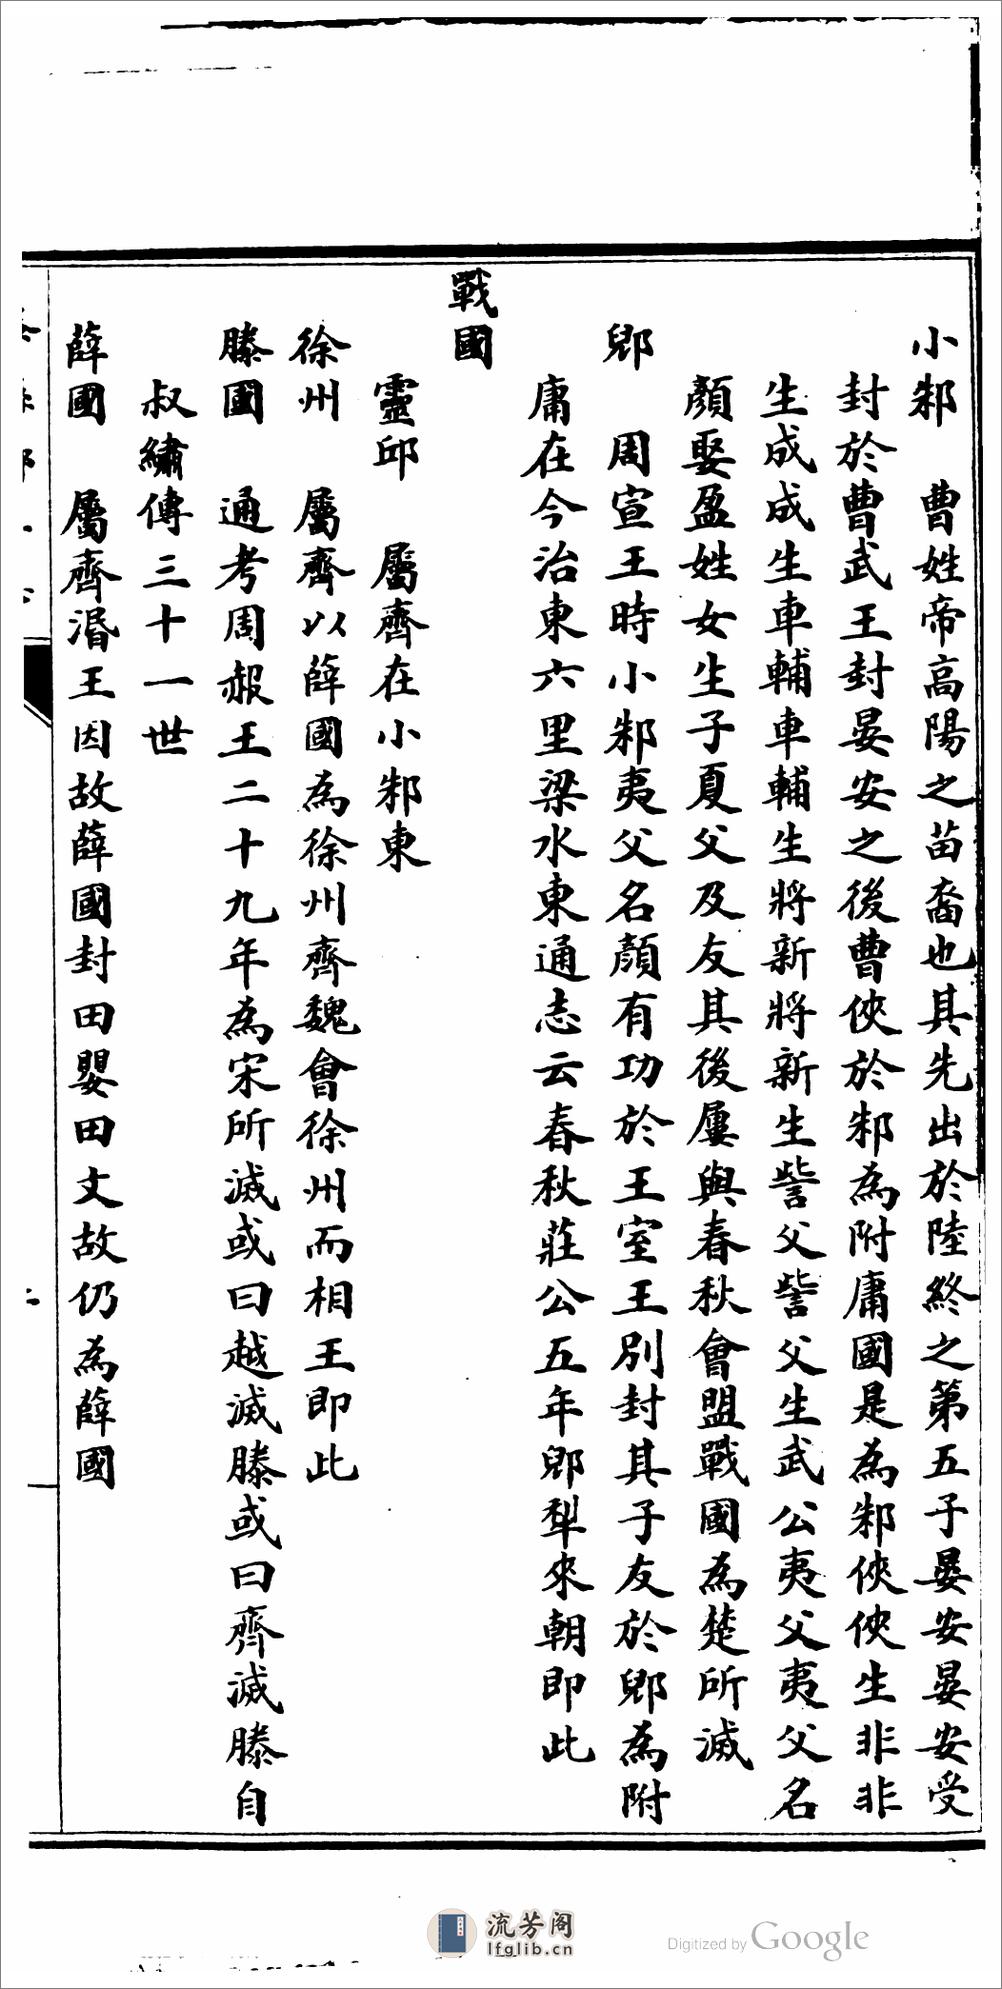 小邾　曹姓帝高陽之苗裔也其先出於陸終之第五子晏安晏安受
封於曹武王封晏安之後曹俠於邾為附庸國是為邾俠俠生非非
生成成生車輔車輔生將新將新生訾父訾父生武公夷父夷父名
顏娶盈姓女生子夏父及友其後屢與春秋會盟戰國為楚所滅
郳　周宣王時小邾夷父名顏有功於王室王別封其子友於郳為附
庸在今治東六里梁水東通志云春秋莊公五年郳犁來朝即此
戰國
靈邱　屬齊在小邾東
徐州　屬齊以薛國為徐州齊魏會徐州而相王即此
滕國　通考周赧王二十九年為宋所滅或曰越滅滕或曰齊滅滕自
叔繡傳三十一世
薛國　屬齊湣王因故薛國封田嬰田文故仍為薛國
流芳阁
lfglib.cn
Digitized by Google